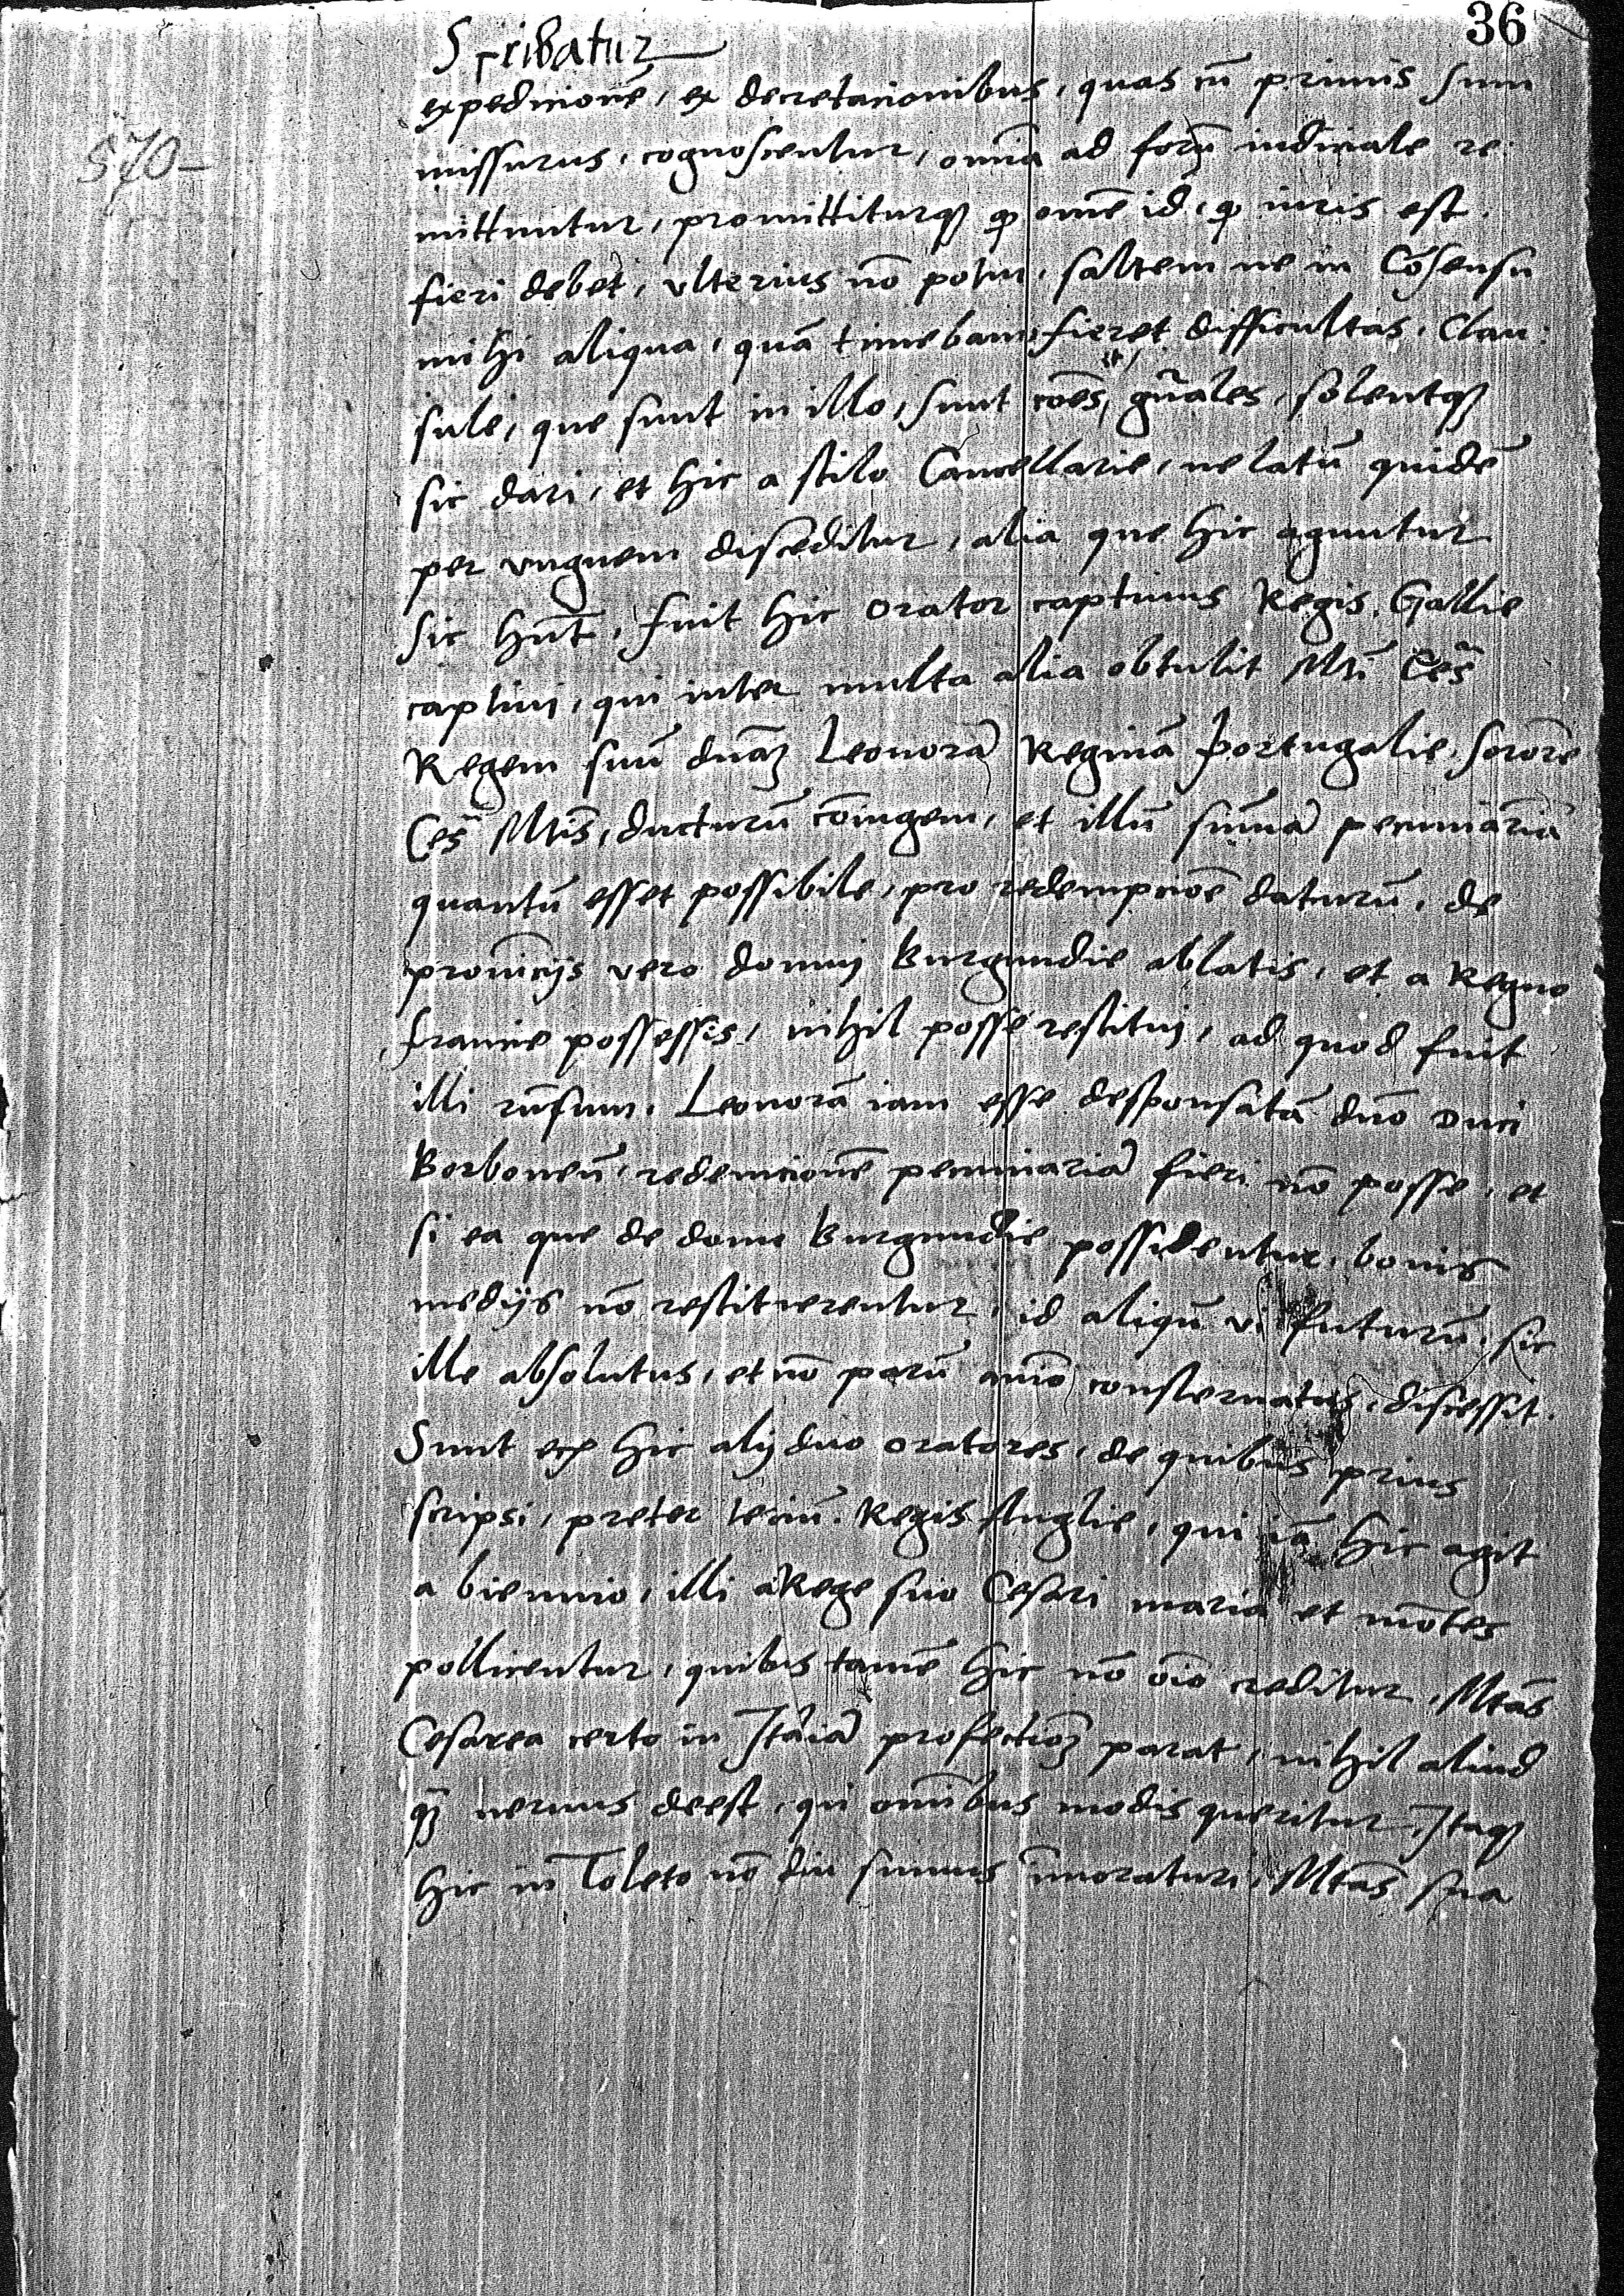 36
Scribatur
570-
expedicionē, ex decretacionibus, quas cū primis sum
missurus, cognoscentur, om̄ia ad forū iudiciale re-
mittuntur, promittiturqꝫ ꝙ om̄e id, ꝙ iuris est
fieri debet, vlterius nō potui, saltem ne in Cōsensu
mihi aliqua, quā timebam, fieret difficultas. Clau-
sule, que sunt in illo, sunt cōes, et gn̄ales, solentqꝫ
sic dari, et hic a stilo Cancellarie, ne latū quidē
per vnguem disceditur, alia que hic aguntur
sic hn̄t. fuit hic orator captiuus Regis Gallie
captiui, qui inter multa alia obtulit Mti Ces̄
Regem suū dnāꝫ Leonorā Reginā Portugalie, sororē
Ces̄ Mtis, ducturū cōiugem, et illū sum̄ā pecuniariā
quantū esset possibile, pro redempcioē daturū, de
prouīcijs vero domuj Burgundie ablatis, et a Regno
francie possessis, nihil posse restituj, ad quod fuit
illi rn̄sum, Leonorā iam esse desponsatā dn̄o Duci
Borboneñ, redemcionē pecuniariā fieri nō posse, et
si ea que de domo Burgundie possidentur, bonis
medijs nō restituerentur, id aliqñ vi futurū, sic
ille absolutus, et nō parū aīo consternatus, discessit.
Sunt hic alij duo oratores, de quibus prius
scripsi, preter terciū Regis Anglie, qui iā hic agit
a biennio, illi a Rege suo Cesari maria et mōtes
pollicentur, quibus tamē hic nō oīo creditur. Mtas
Cesarea certo in Italiā profectioꝫ parat, nihil aliud
qꝫ neruus deest, qui om̄ibus modis queritur, Itaqꝫ
hic in Toleto nō diu sumus īmoraturi, Mtas sua